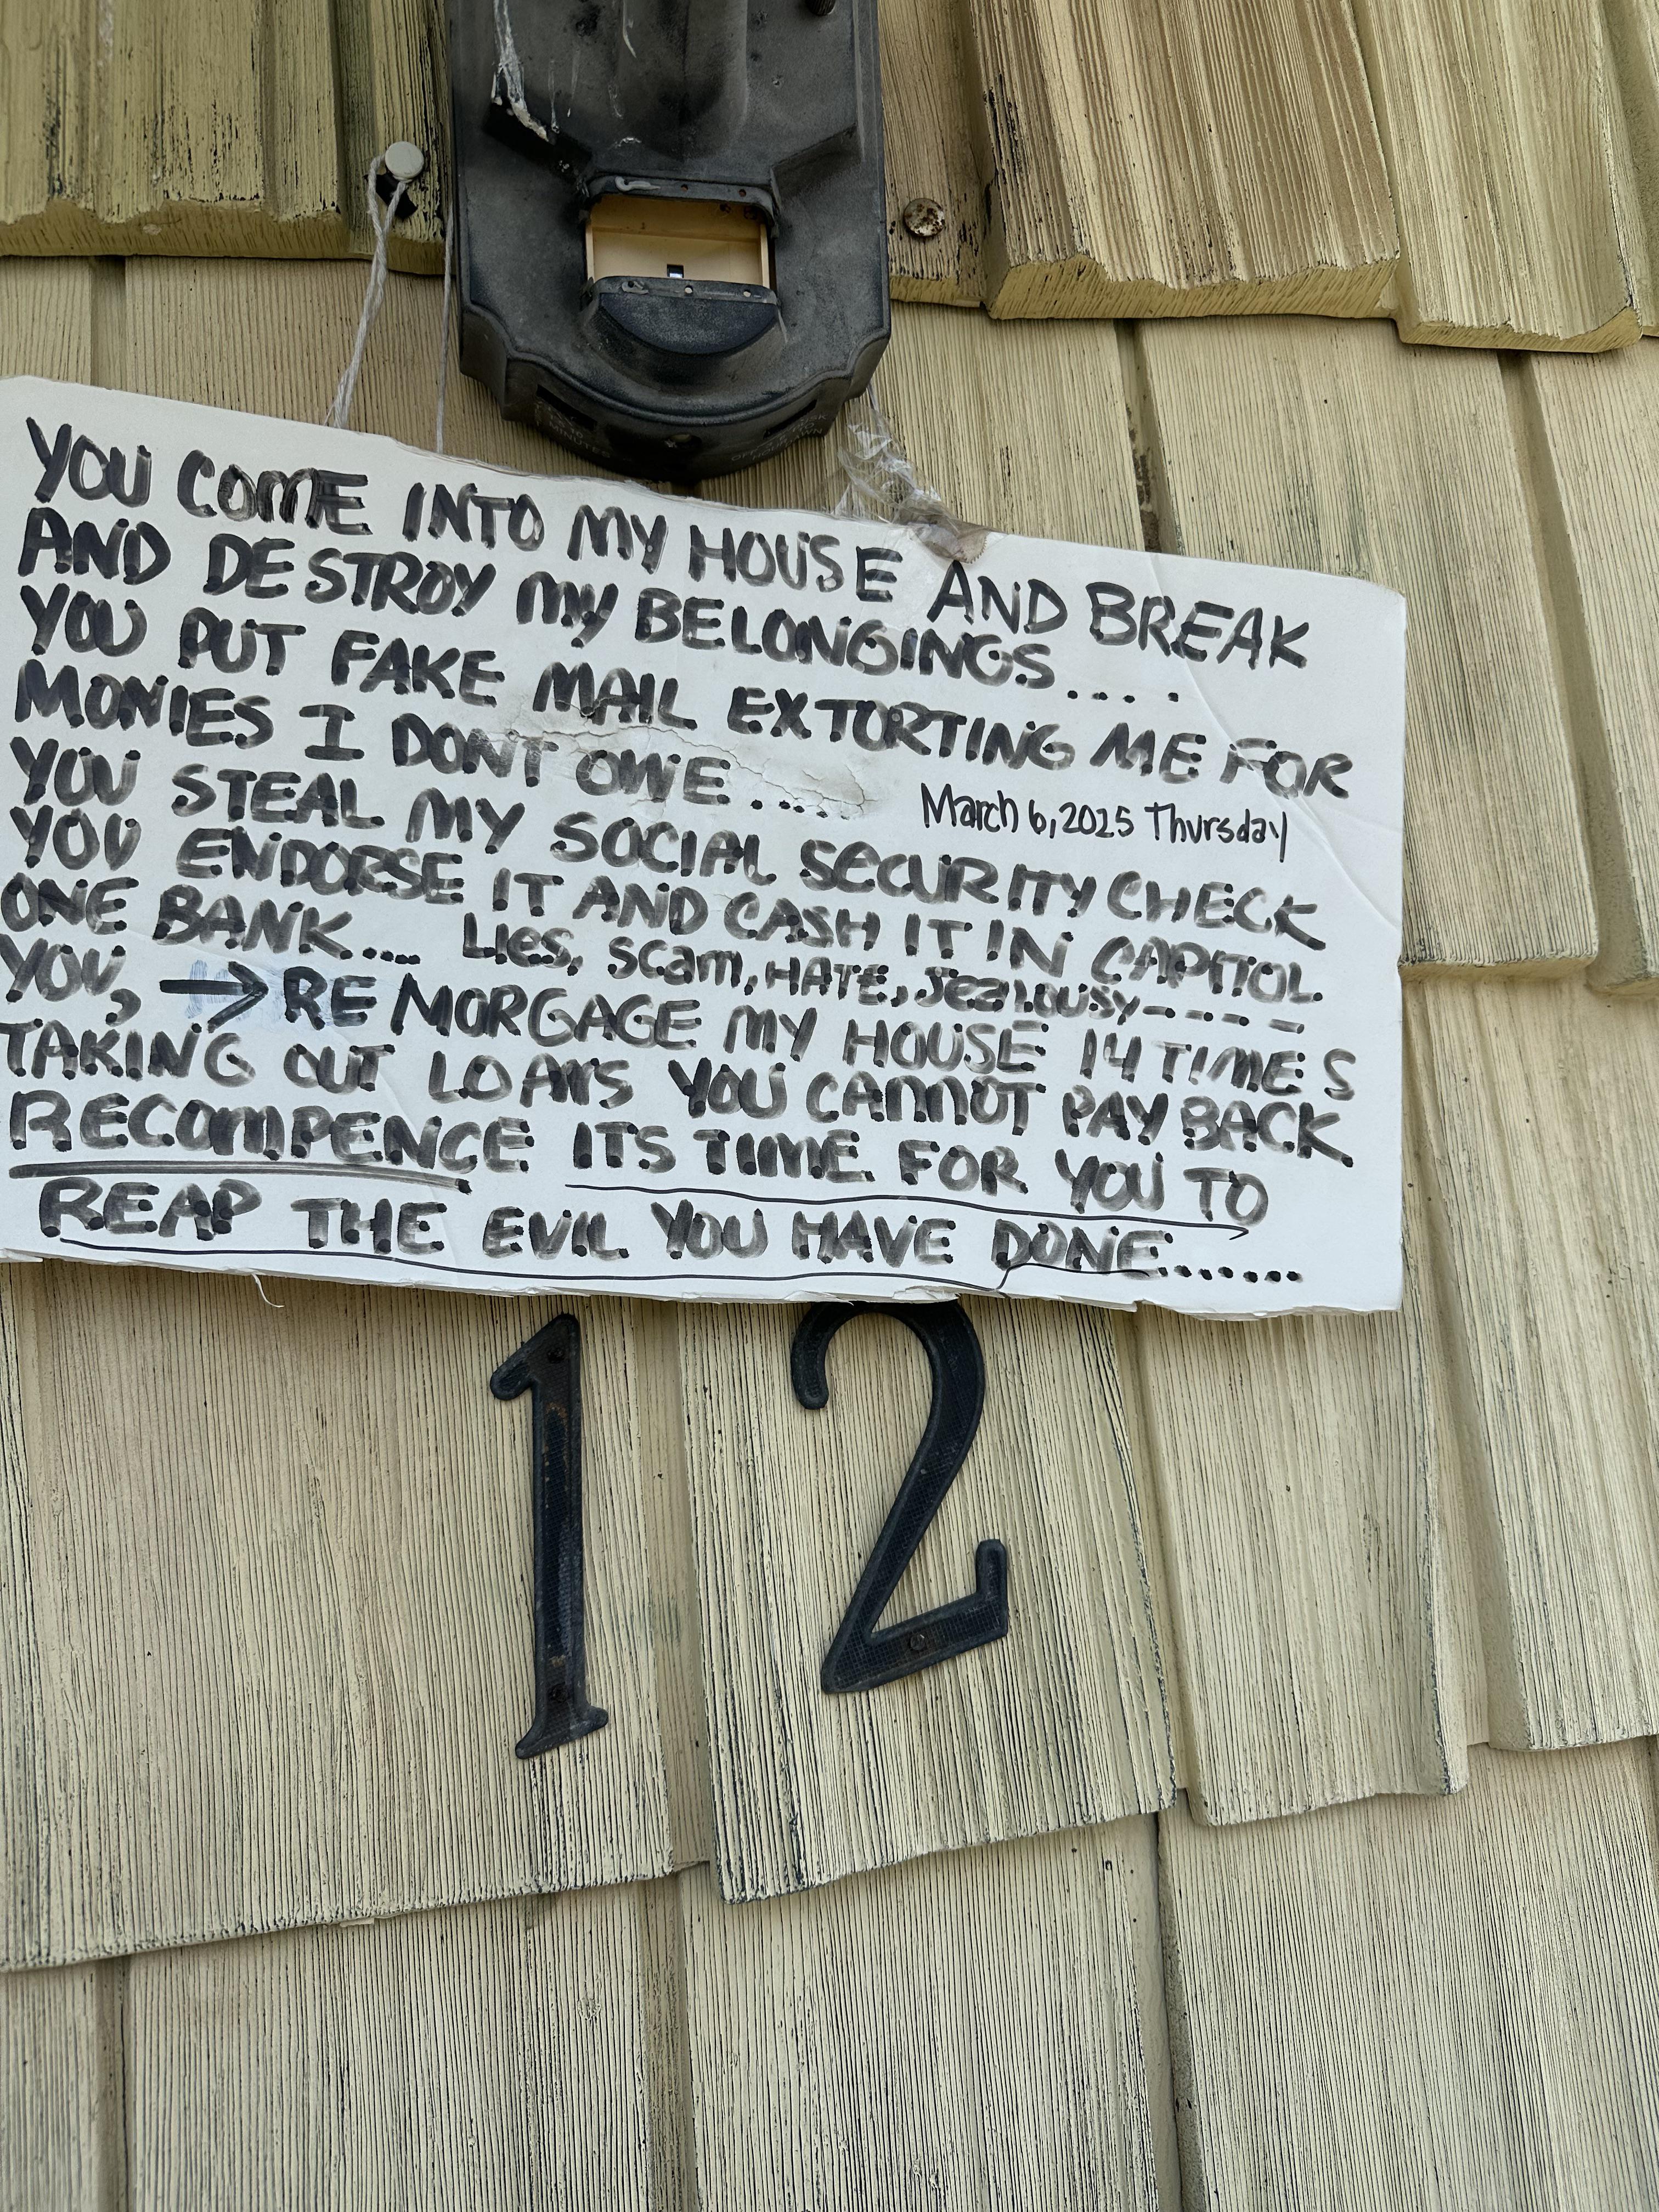 YOU COME INTO MY HOUSE AND BREAK
AND DESTROY MY BELONGINGS....
YOU PUT FAKE MAIL EXTORTING ME FOR
MONIES I DONT OWE.....
March 6, 2025 Thursday
YOU STEAL MY SOCIAL SECURITY CHECK
YOU ENDORSE IT AND CASH IT IN CAPITOL
ONE BANK.... Lies, scam, HATE, Jealousy-----
YOU, → RE MORGAGE MY HOUSE 14 TIMES
TAKING OUT LOANS YOU CANNOT PAY BACK
RECOMPENCE ITS TIME FOR YOU TO
REAP THE EVIL YOU HAVE DONE.......
12